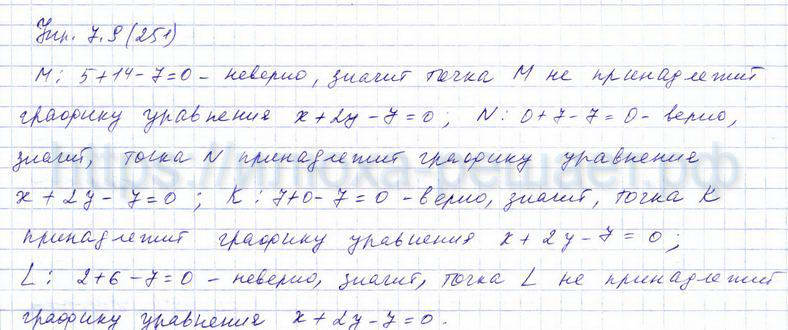 Упр. 7.9 (251)
М: 5+14-7=0 - неверно, значит точка М не принадлежит
графику уравнения x+2y-7=0; N: 0+7-7=0 - верно,
значит, точка N принадлежит графику уравнения
x+2y-7=0; К: 7+0-7=0 - верно, значит, точка К
принадлежит графику уравнения x+2y-7=0;
L: 2+6-7=0 - неверно, значит, точка L не принадлежит
графику уравнения x+2y-7=0.